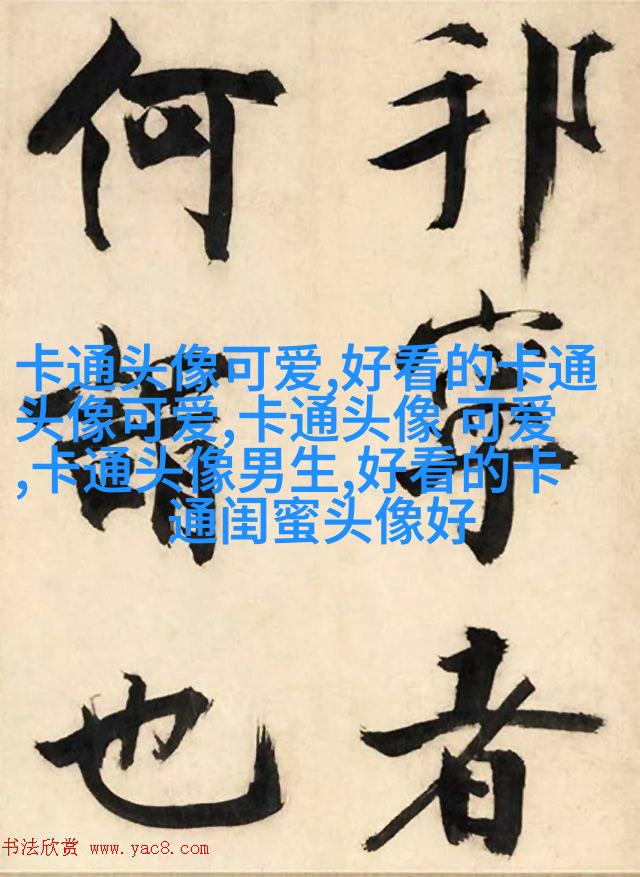 邦寧者
何謂也
卡通头像可爱,好看的卡通
头像可爱,卡通头像 可爱
,卡通头像男生,好看的卡
通闺蜜头像好
书法欣赏 www.yac8.com